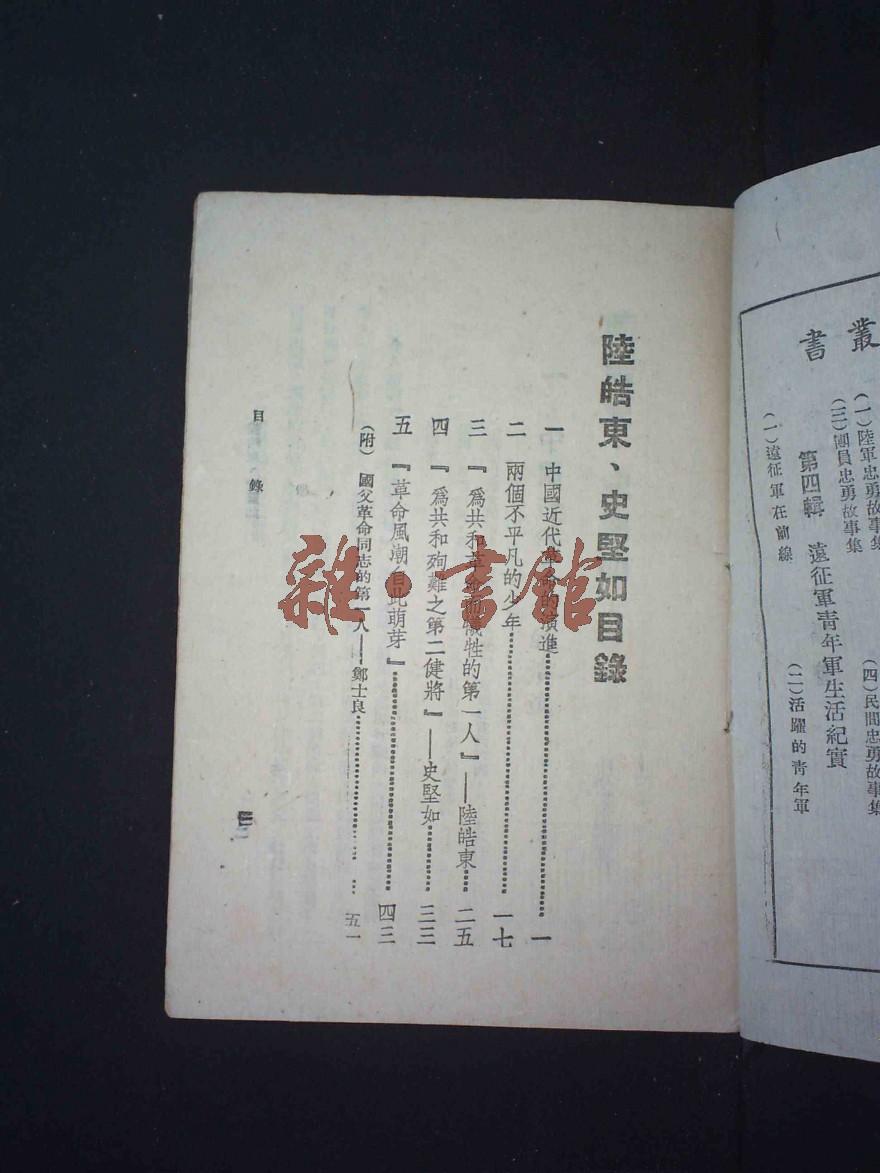 叢書
(一)陸軍忠勇故事集
(三)團員忠勇故事集
(四)民間忠勇故事集
第四輯 遠征軍青年軍生活紀實
(一)遠征軍在前線
(二)活躍的青年軍
陸皓東、史堅如目錄
一 中國近代革命的演進 一
二 兩個不平凡的少年 一七
三 『爲共和革命而犧牲的第一人』——陸皓東 二五
四 『爲共和殉難之第二健將』——史堅如 三三
五 『革命風潮自此萌芽』 四三
(附)國父革命同志的第一人——鄭士良 五一
目錄
雜·書館